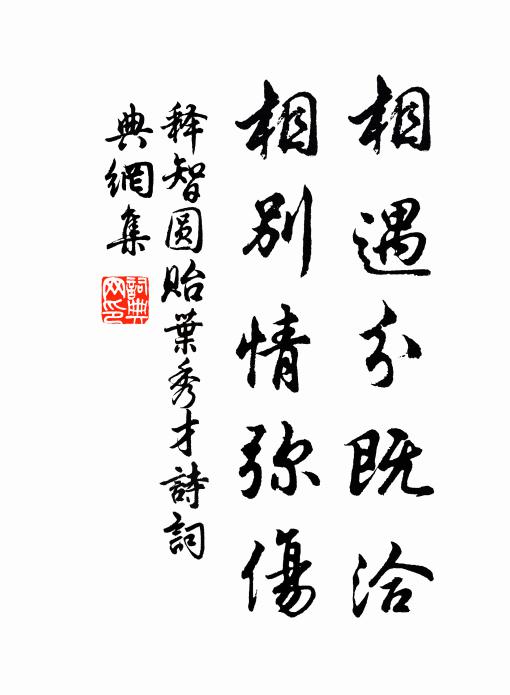 相遇分既洽
相别情弥傷
释智圆贻葉秀才詩詞
典網集
詞典網印